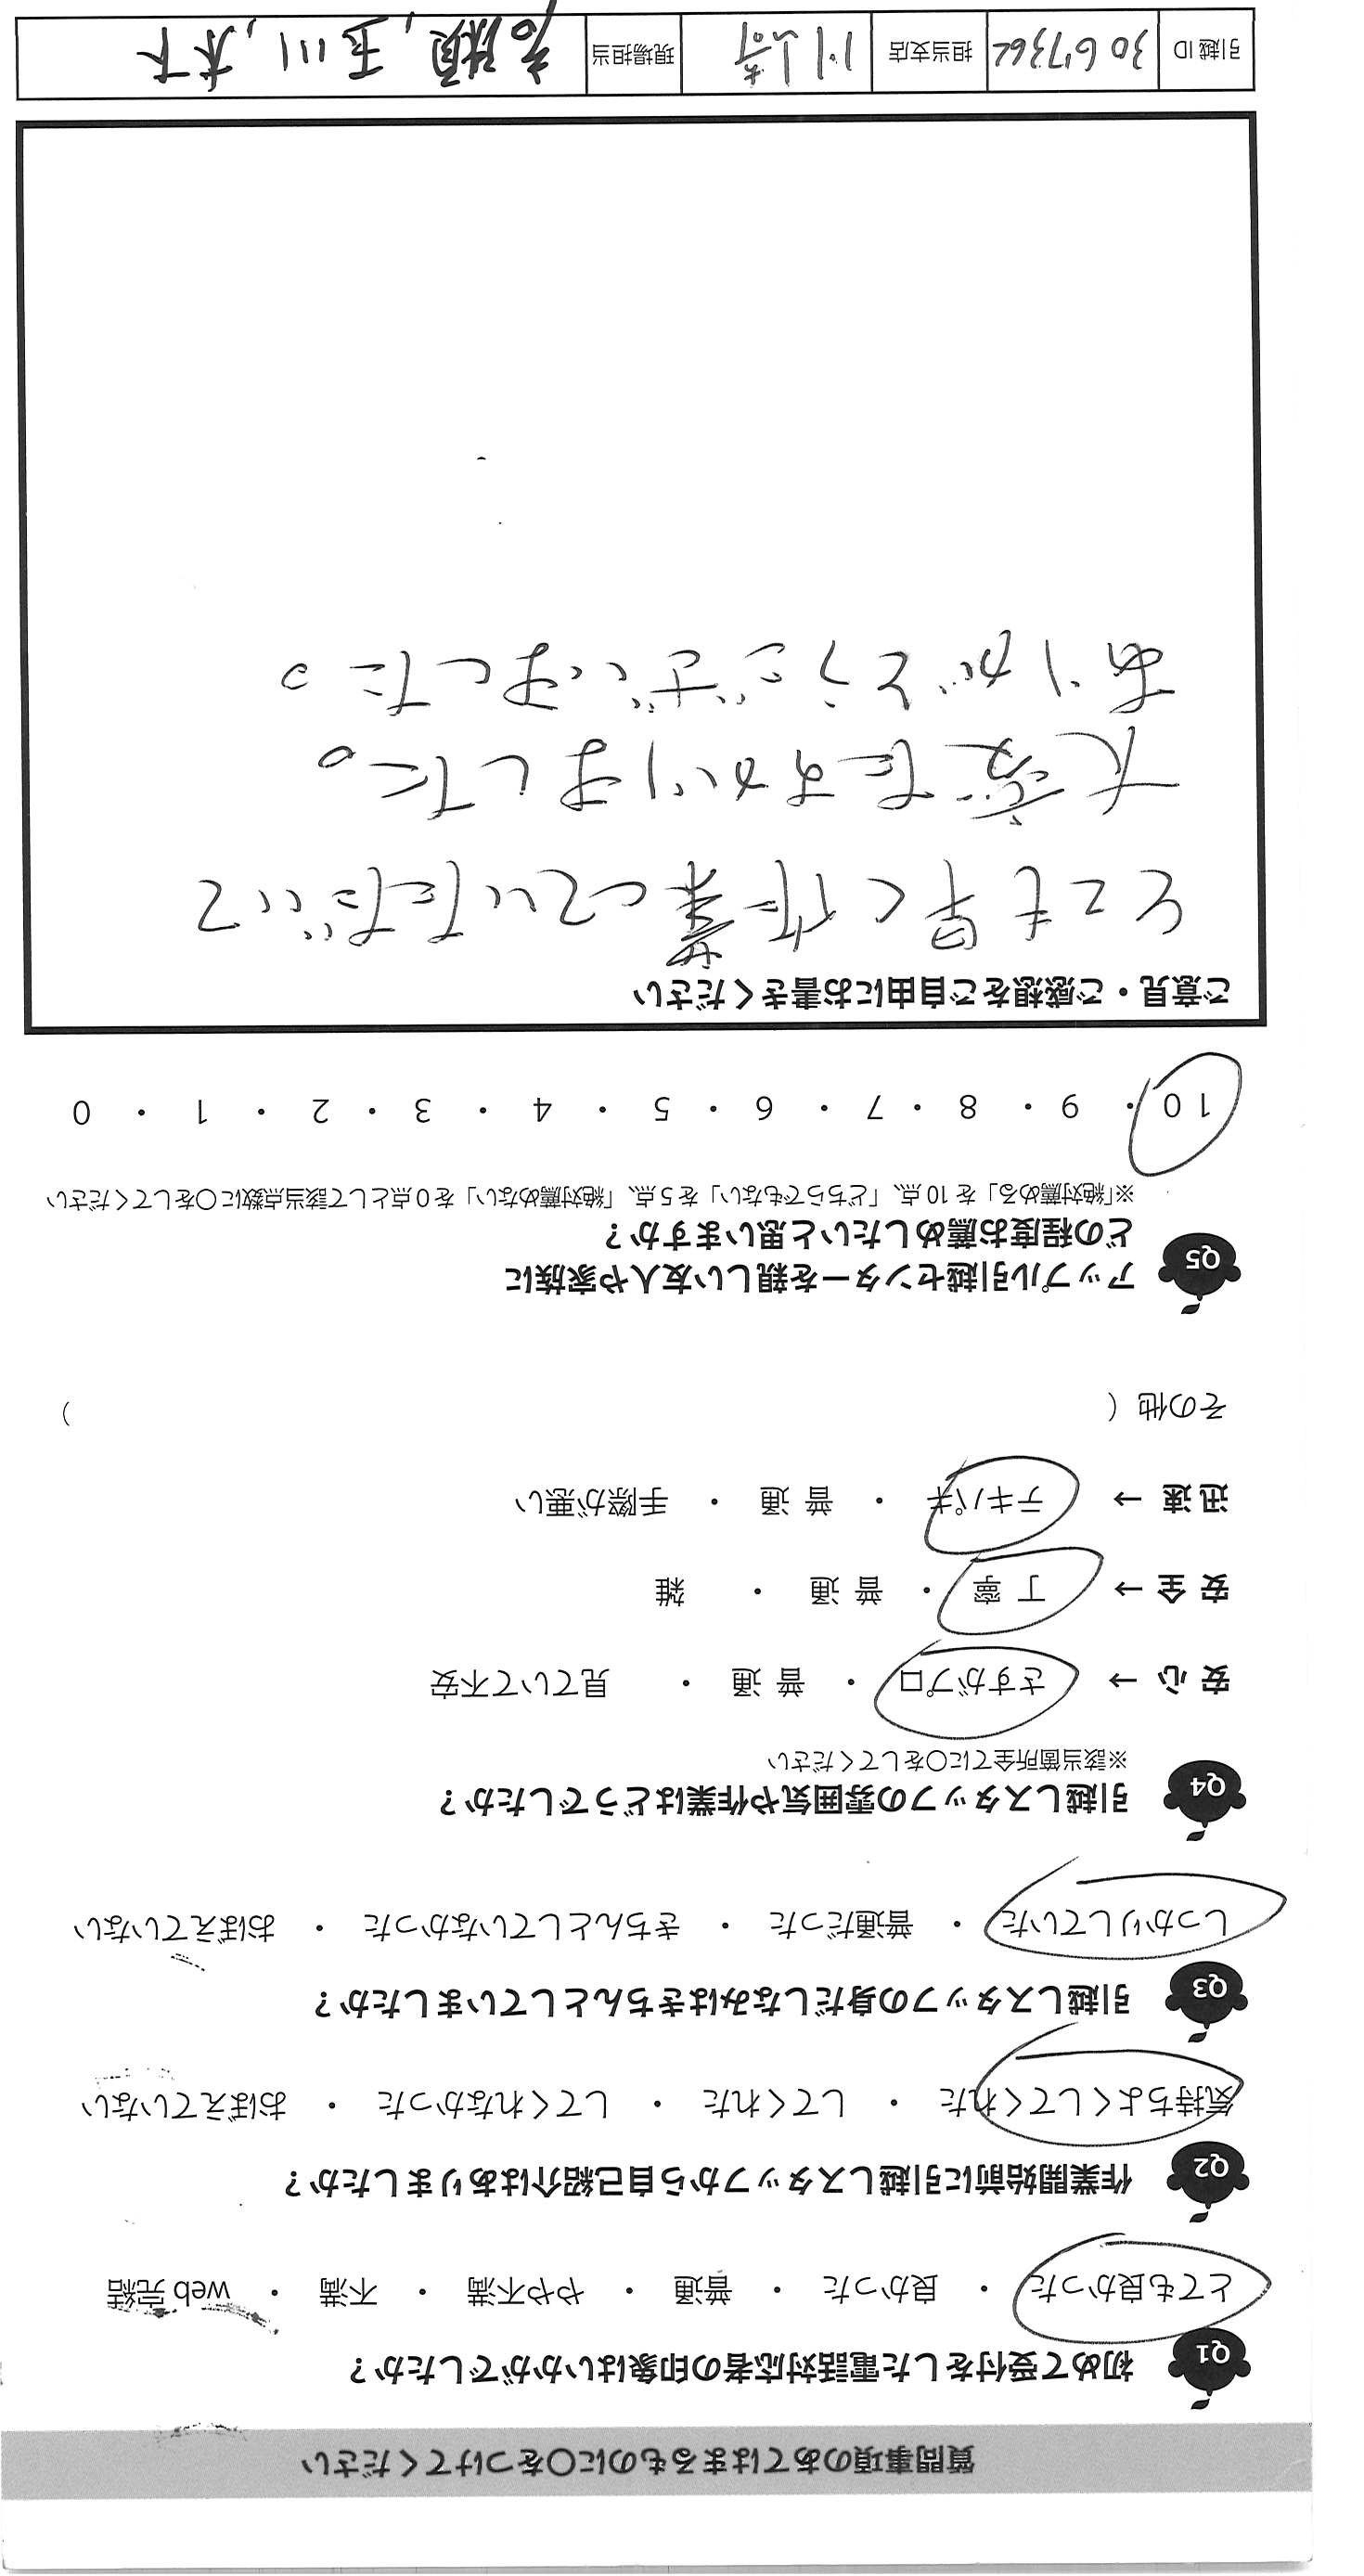 質問事項のあてはまるものに〇をつけてください
Q1 初めて受付をした電話対応者の印象はいかがでしたか？
とても良かった ・ 良かった ・ 普通 ・ やや不満 ・ 不満 ・ web 完結
Q2 作業開始前に引越しスタッフから自己紹介はありましたか？
気持ちよくしてくれた ・ してくれた ・ してくれなかった ・ おぼえていない
Q3 引越しスタッフの身だしなみはきちんとしていましたか？
しっかりしていた ・ 普通だった ・ きちんとしていなかった ・ おぼえていない
Q4 引越しスタッフの雰囲気や作業はどうでしたか？
※該当箇所全てに〇をしてください
安 心 → さすがプロ ・ 普 通 ・ 見ていて不安
安 全 → 丁 寧 ・ 普 通 ・ 雑
迅 速 → テキパキ ・ 普 通 ・ 手際が悪い
その他（ ）
Q5 アップル引越センターを親しい友人や家族に
どの程度お薦めしたいと思いますか？
※「絶対薦める」を 10 点、「どちらでもない」を 5 点、「絶対薦めない」を 0 点として該当点数に〇をしてください
10 ・ 9 ・ 8 ・ 7 ・ 6 ・ 5 ・ 4 ・ 3 ・ 2 ・ 1 ・ 0
ご意見・ご感想をご自由にお書きください
とても早く作業していただいて
大変たすかりました。
ありがとうございました。
引越 ID 担当支店 川崎 現場担当 玉川, 木下